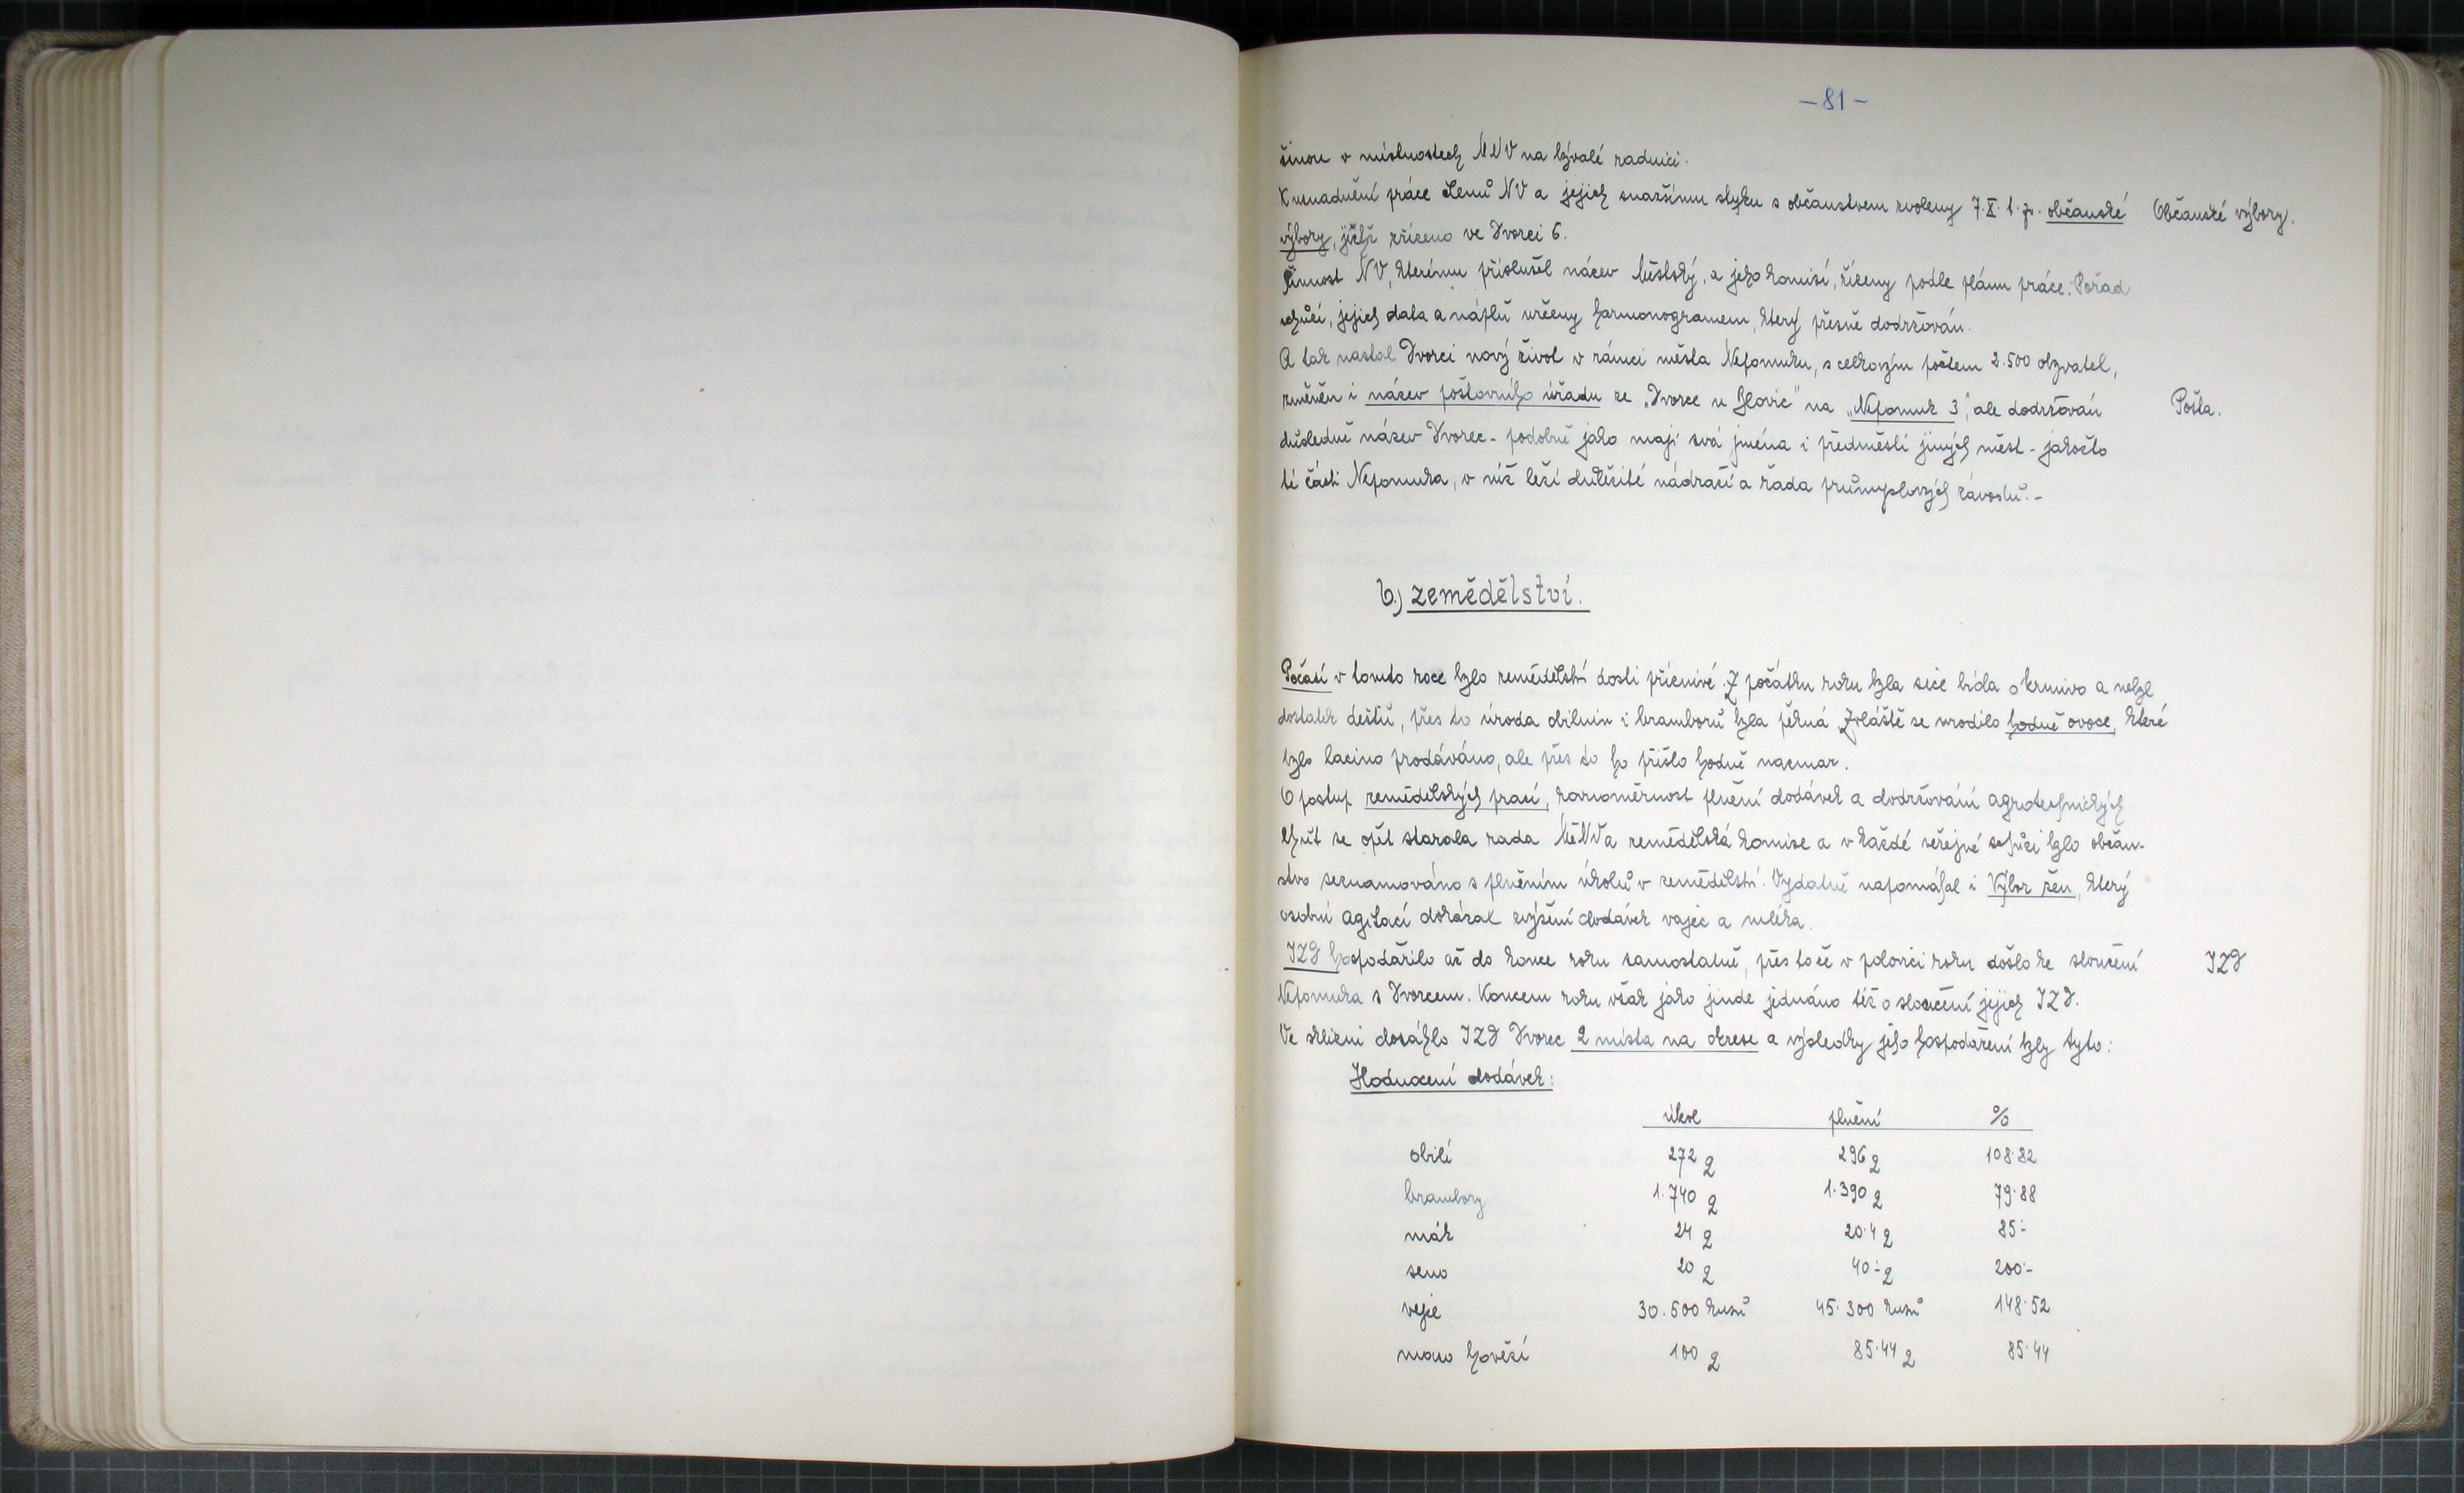 -81-
šinou v místnostech MNV na bývalé radnici.
K usnadnění práce členů NV a jejich snazšímu styku s občanstvem zvoleny 7.X. t.r. občanské
Občanské výbory.
výbory, jichž zřízeno ve Dvorci 6.
Činnost NV, kterému příslušel název Městský, a jeho komisí, řízeny podle plánu práce. Pořad
schůzí, jejich data a náplň určeny harmonogramem, který přesně dodržován.
A tak nastal Dvorci nový život v rámci města Nepomuku, s celkovým počtem 2.500 obyvatel,
změněn i název poštovního úřadu ze „Dvorce u Blovic" na „Nepomuk 3", ale dodržován
Pošta.
důsledně název Dvorec - podobně jako mají svá jména i předměstí jiných měst - jakožto
té části Nepomuka, v níž leží důležité nádraží a řada průmyslových závodů.-
b.) zemědělství.
Počasí v tomto roce bylo zemědělství dosti příznivé. Z počátku roku byla sice bída o krmivo a nebyl
dostatek deštů, přes to úroda obilnin i bramborů byla pěkná. Zvláště se urodilo hodně ovoce, které
bylo lacino prodáváno, ale přes to ho přišlo hodně nazmar.
O postup zemědělských prací, rovnoměrnost plnění dodávek a dodržování agrotechnických
lhůt se opět starala rada MěNV a zemědělská komise a v každé veřejné schůzi bylo občan-
stvo seznamováno s plněním úkolů v zemědělství. Vydatně napomáhal i Výbor žen, který
osobní agitací dokázal zvýšení dodávek vajec a mléka.
JZD hospodařilo až do konce roku samostatně, přes to že v polovici roku došlo ke sloučení
JZD
Nepomuka s Dvorcem. Koncem roku však jako jinde jednáno též o sloučení jejich JZD.
Ve sklizni dosáhlo JZD Dvorec 2 místa na okrese a výsledky jeho hospodaření byly tyto:
Hodnocení dodávek:
úkol plnění %
obilí 272 q 296 q 108.82
brambory 1.740 q 1.390 q 79.88
mák 24 q 20.4 q 85.-
seno 20 q 40.- q 200.-
vejce 30.500 kusů 45.300 kusů 148.52
maso hovězí 100 q 85.44 q 85.44